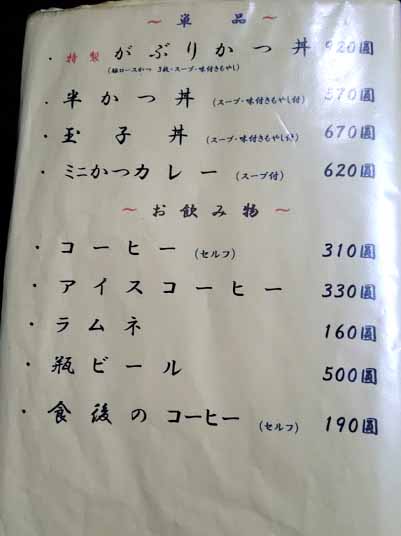 ～ 単品 ～
・特製 がぶりかつ丼 920圓
(豚ロースかつ 3枚・スープ・味付きもやし)
・半かつ丼 (スープ・味付きもやし付) 570圓
・玉子丼 (スープ・味付きもやし付) 670圓
・ミニかつカレー (スープ付) 620圓
～ お飲み物 ～
・コーヒー (セルフ) 310圓
・アイスコーヒー 330圓
・ラムネ 160圓
・瓶ビール 500圓
・食後のコーヒー (セルフ) 190圓